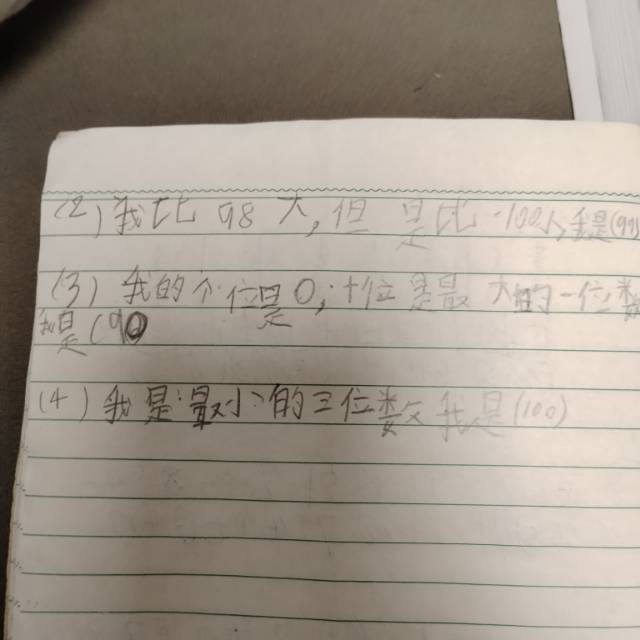 (2)我比98大,但是比100小,我是(99)
(3)我的个位是0,十位是最大的一位数
我是(90
(4)我是最小的三位数我是(100)